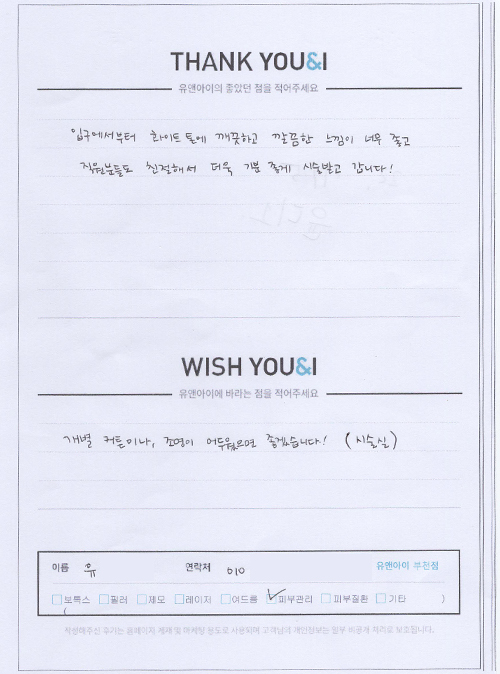 THANK YOU&I
유앤아이의 좋았던 점을 적어주세요
입구에서부터 화이트 톤에 깨끗하고 깔끔한 느낌이 너무 좋고
직원분들도 친절해서 더욱 기분 좋게 시술받고 갑니다!
WISH YOU&I
유앤아이에 바라는 점을 적어주세요
개별 커튼이나, 조명이 어두웠으면 좋겠습니다! (시술실)
이름 유 연락처 010 유앤아이 부천점
보톡스 필러 제모 레이저 여드름 피부관리 피부질환 기타 )
(
작성해주신 후기는 홈페이지 게재 및 마케팅 용도로 사용되며 고객님의 개인정보는 일부 비공개 처리로 보호됩니다.